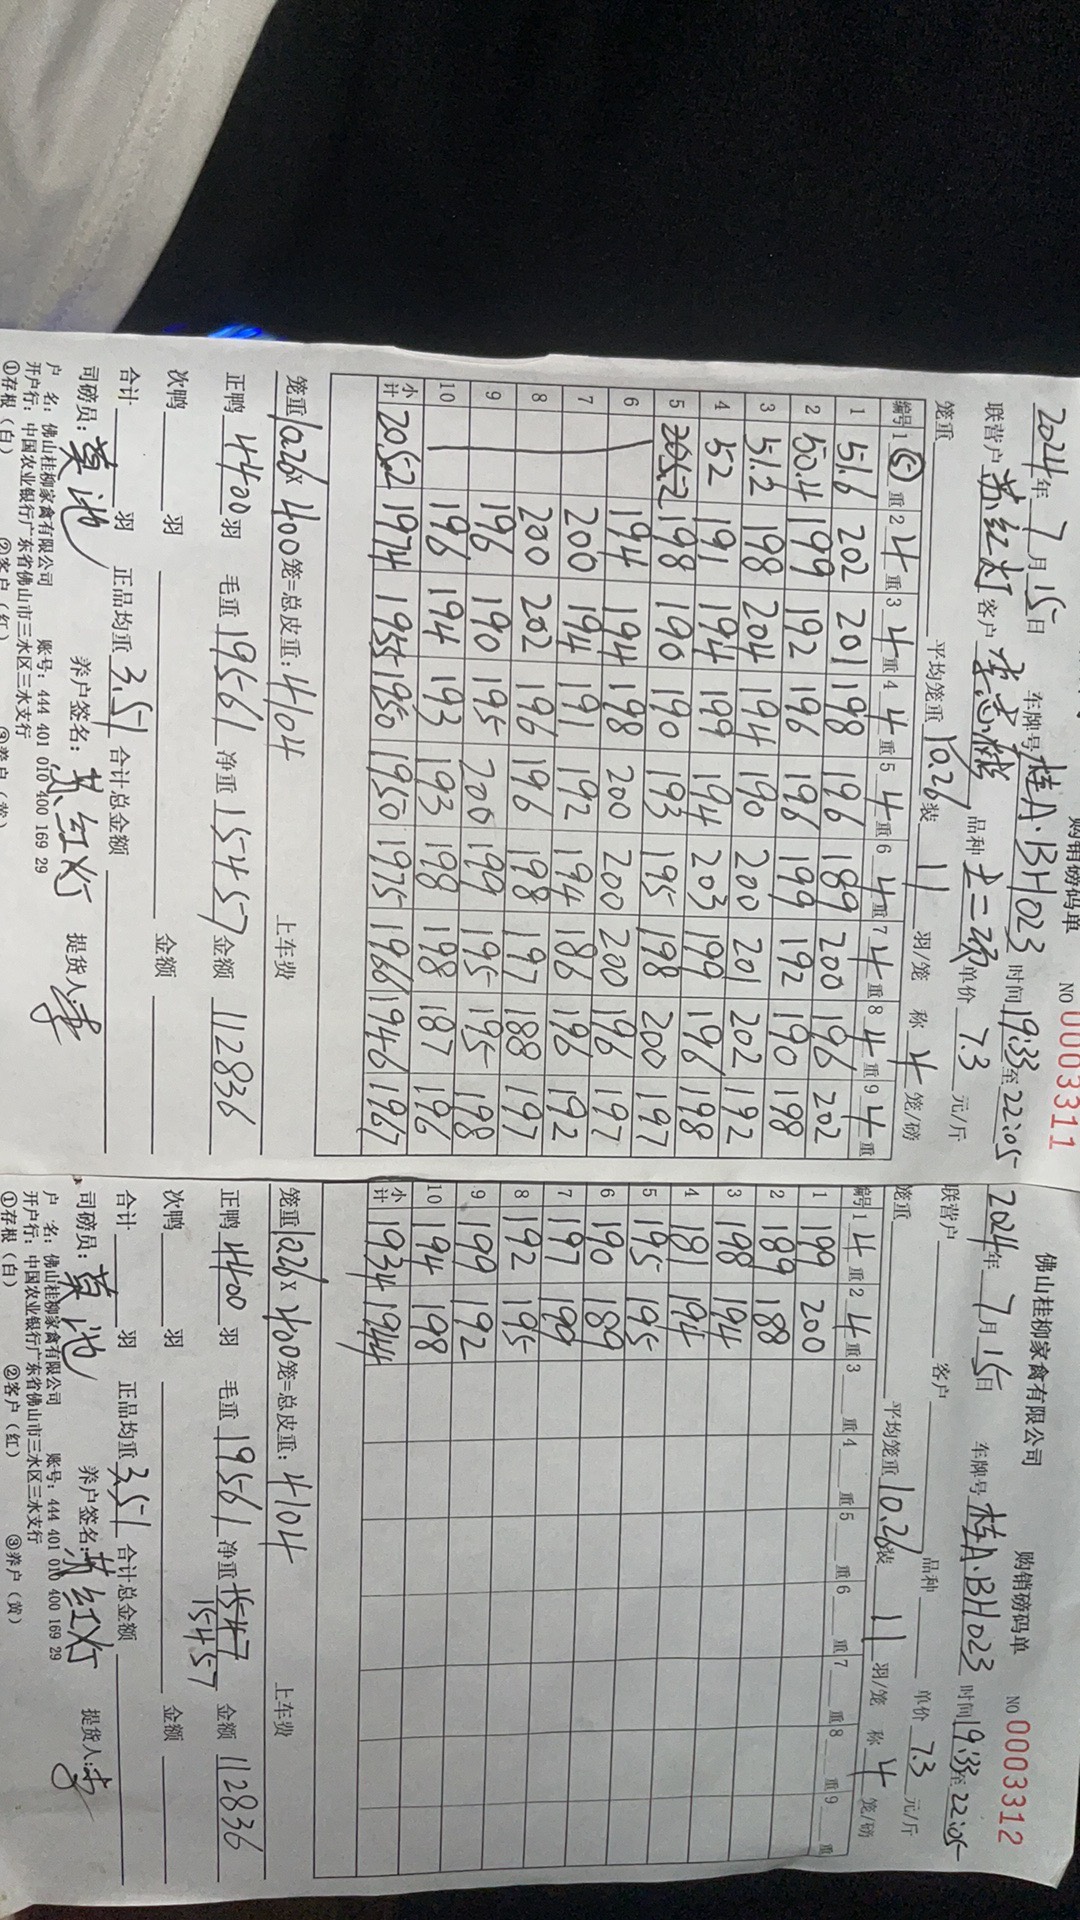 购销磅码单 NO 0003311
2024年7月15日 车牌号 桂A·BH023 时间 19:33至22:05
联营户 苏红灯 客户 品种 单价 7.3 元/斤
笼重 平均笼重 10.26 装 11 羽/笼 称 4 笼/磅
编号 1 ⑤ 重 2 4 重 3 4 重 4 4 重 5 4 重 6 4 重 7 4 重 8 4 重 9 4 重
1 51.6 202 201 198 196 189 200 196 202
2 50.4 199 192 196 196 199 192 190 198
3 51.2 198 204 194 190 200 201 202 192
4 52 191 194 199 194 203 199 196 198
5 205.2 198 190 190 193 195 198 200 197
6 194 194 198 200 200 200 196 197
7 200 194 191 192 194 186 196 192
8 200 202 196 196 198 197 188 197
9 196 190 195 200 199 195 195 198
10 196 194 193 193 198 198 187 196
小计 20.52 1974 1955 1950 1950 1975 1966 1946 1967
笼重 10.26 × 400 笼=总皮重: 4104 上车费
正鸭 4400 羽 毛重 19561 净重 15457 金额 112836
次鸭 羽 金额
合计 羽 正品均重 3.51 合计总金额
司磅员: 莫池 养户签名: 苏红灯 提货人: 李
户 名: 佛山桂柳家禽有限公司 账号: 444 401 010 400 169 29
开户行: 中国农业银行广东省佛山市三水区三水支行
①存根(白) ②客户(红) ③养户(黄)
佛山桂柳家禽有限公司 购销磅码单 NO 0003312
2024年7月15日 车牌号 桂A·BH023 时间 19:33至22:05
联营户 客户 品种 单价 7.3 元/斤
笼重 平均笼重 10.26 装 11 羽/笼 称 4 笼/磅
编号 1 4 重 2 4 重 3 重 4 重 5 重 6 重 7 重 8 重 9 重
1 199 200
2 189 188
3 198 194
4 181 194
5 195 195
6 190 189
7 197 199
8 192 195
9 199 192
10 194 198
小计 1934 1944
笼重 10.26 × 400 笼=总皮重: 4104 上车费
正鸭 4400 羽 毛重 19561 净重 1547 金额 112836
15457
次鸭 羽 金额
合计 羽 正品均重 3.51 合计总金额
司磅员: 莫池 养户签名: 苏红灯 提货人: 李
户 名: 佛山桂柳家禽有限公司 账号: 444 401 010 400 169 29
开户行: 中国农业银行广东省佛山市三水区三水支行
①存根(白) ②客户(红) ③养户(黄)